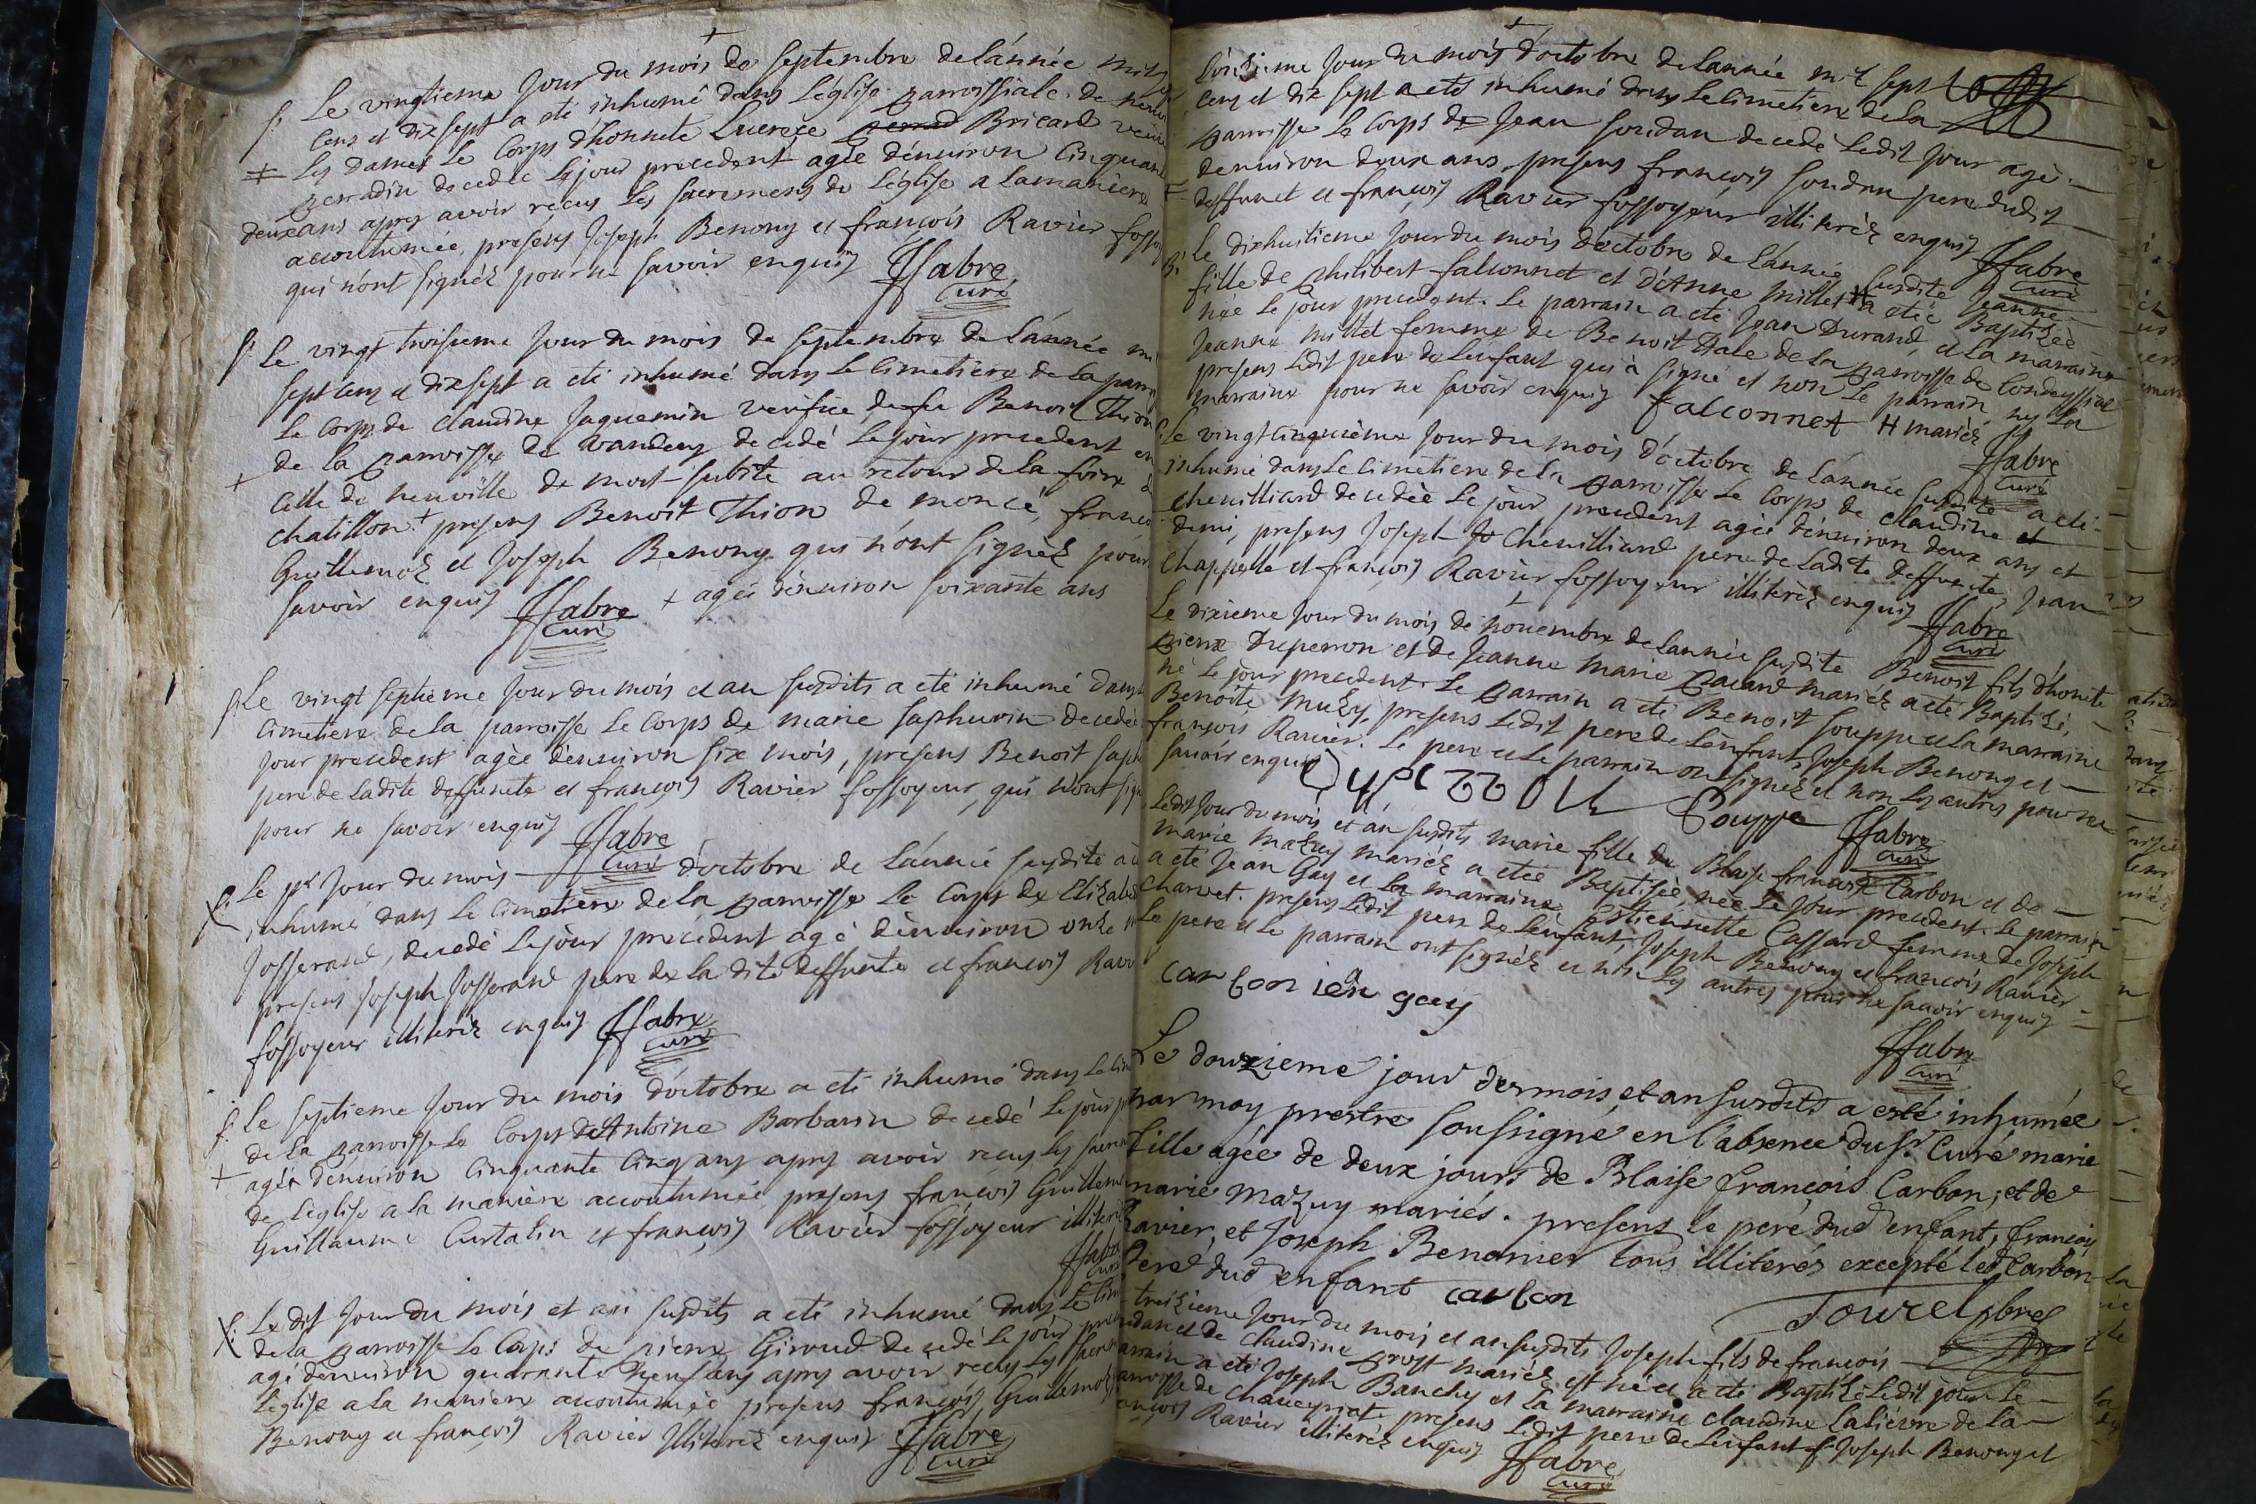 Le vingtieme Jour du mois de septembre de l'année mil
cens et dix sept a eté inhumé dans l'église parroissiale de
les dames le Corps d'honnete Lucrece Bricard
perradin decedee le jour precedent agée d'environ Cinquante
deux ans apres avoir receus les sacremens de l'église a la maniere
accoutumée presens Joseph Benony et françois Ravier
qui n'ont signéz pour ne savoir enquis JFabre
Curé
Le vingt troisieme Jour du mois de septembre de l'année
sept cens et dix sept a eté inhumé dans le Cimetiere de la
le Corps de Claudine Jaquemin de feu Benoit Thion
de la parroisse de Vandens decedé le jour precedent en
celle de neuville de mort subite au retour de la foire
chatillon + presens Benoit Thion de moncé,
Guillemoz et Joseph Benony qui n'ont signéz pour
savoir enquis JFabre + agée d'environ soixante ans
Curé
Le vingt septieme Jour du mois et an susdits a eté inhumé dans
Cimetiere de la parroisse le Corps de marie decedée
jour precedent agée d'environ six mois, presens Benoit
pere de ladite deffuncte et françois Ravier fossoyeur, qui n'ont
pour ne savoir enquis JFabre
Curé
Le pr Jour du mois d'octobre de l'année susdite a
inhumé dans le Cimetiere de la parroisse le Corps de
Josserand, decedé le jour précédent agé d'environ onze
presens Joseph Josserand pere de la dite deffunte et françois
fossoyeur illiteréz enquis JFabre
Curé
Le septieme Jour du mois d'octobre a eté inhumé dans le
de la parroisse le Corps d'Antoine Barbarin decedé le jour
agé d'environ Cinquante Cinq ans apres avoir receus les
de l'église a la maniere accoutumée presens françois
Guillaume Curtalin et françois Ravier fossoyeur
JFabre
Curé
Le dit Jour du mois et an susdits a eté inhumé dans le
de la parroisse le Corps de pierre Giroud decedé le jour
agé d'environ quarante neuf ans apres avoir receus les
l'église a la maniere accoutumée presens françois Guillemoz
Benony et françois Ravier Illiteréz enquis JFabre
Curé
L'onzieme Jour du mois d'octobre de l'année mil sept
cens et dix sept a eté inhumé dans le Cimetiere de la
parroisse le Corps de Jean Soudan decedé ledit Jour agé
d'environ deux ans, presens françois Soudan pere dudit
deffunct et françois Ravier fossoyeur illiteréz enquis
JFabre
Curé
Le dixhuitieme Jour du mois d'octobre de l'année susdite Jeanne
fille de philibert falconnet et d'Anne Millet # a eteé Baptizée
née le jour precedent. Le parrain a eté Jean Durand, et la marraine
Jeanne Millet femme de Benoit de la parroisse de Condeyssiat
presens ledit pere de l'enfant qui a signé et non le parrain ny la
marraine pour ne savoir enquis falconnet # mariéz
JFabre
Curé
Le vingt Cinquieme Jour du mois d'octobre de l'année susdite a eté
inhumé dans le Cimetiere de la parroisse le Corps de Claudine
Chenilliard decedée le jour precedent agée d'environ deux ans et
demi, presens Joseph Chenilliard pere de ladite deffuncte, Jean
Chappelle et françois Ravier fossoyeur illiteréz enquis
JFabre
Curé
Le dixieme Jour du mois de novembre de l'année susdite Benoit fils d'honete
pierre Duperron et de Jeanne Marie mariéz a eté Baptizé,
né le jour precedent. Le parrain a eté Benoit Souppe et la marraine
Benoite Muzy, presens ledit pere de l'enfant, Joseph Benony et
françois Ravier. Le pere et le parrain ont signéz et non les autres pour ne
savoir enquis Souppe JFabre
Curé
Ledit Jour du mois et an susdits marie fille de Blaise françois Carbon et de
marie Mazuy mariéz a eteé Baptisée, née le Jour precedent. Le parrain
a eté Jean Gay et la marraine Estiennette Cassard femme de Joseph
Charvet. presens ledit pere de l'enfant, Joseph Benony et françois Ravier
Le pere et le parrain ont signéz et non les autres pour ne savoir enquis
carbon iean gay
JFabre
Curé
Le douzieme jour des mois et an susdits a esté inhumée
par moy prestre soussigné en l'absence du Sr. Curé marie
fille agée de deux jours de Blaise françois Carbon, et de
marie Mazuy mariés. presens le pere dud enfant, françois
Ravier, et Joseph Benonier tous illiterés excepté led Carbon
Pere dud enfant carbon
Tourel pbre
treizieme Jour du mois et an susdits Joseph fils de françois
et de Claudine prost mariéz est né et a eté Baptizé ledit jour le
parrain a eté Joseph Banchy et la marraine Claudine Laliévre de la
de Chaveyriat presens ledit pere de l'enfant Joseph Benony et
françois Ravier illiteréz enquis JFabre
Curé